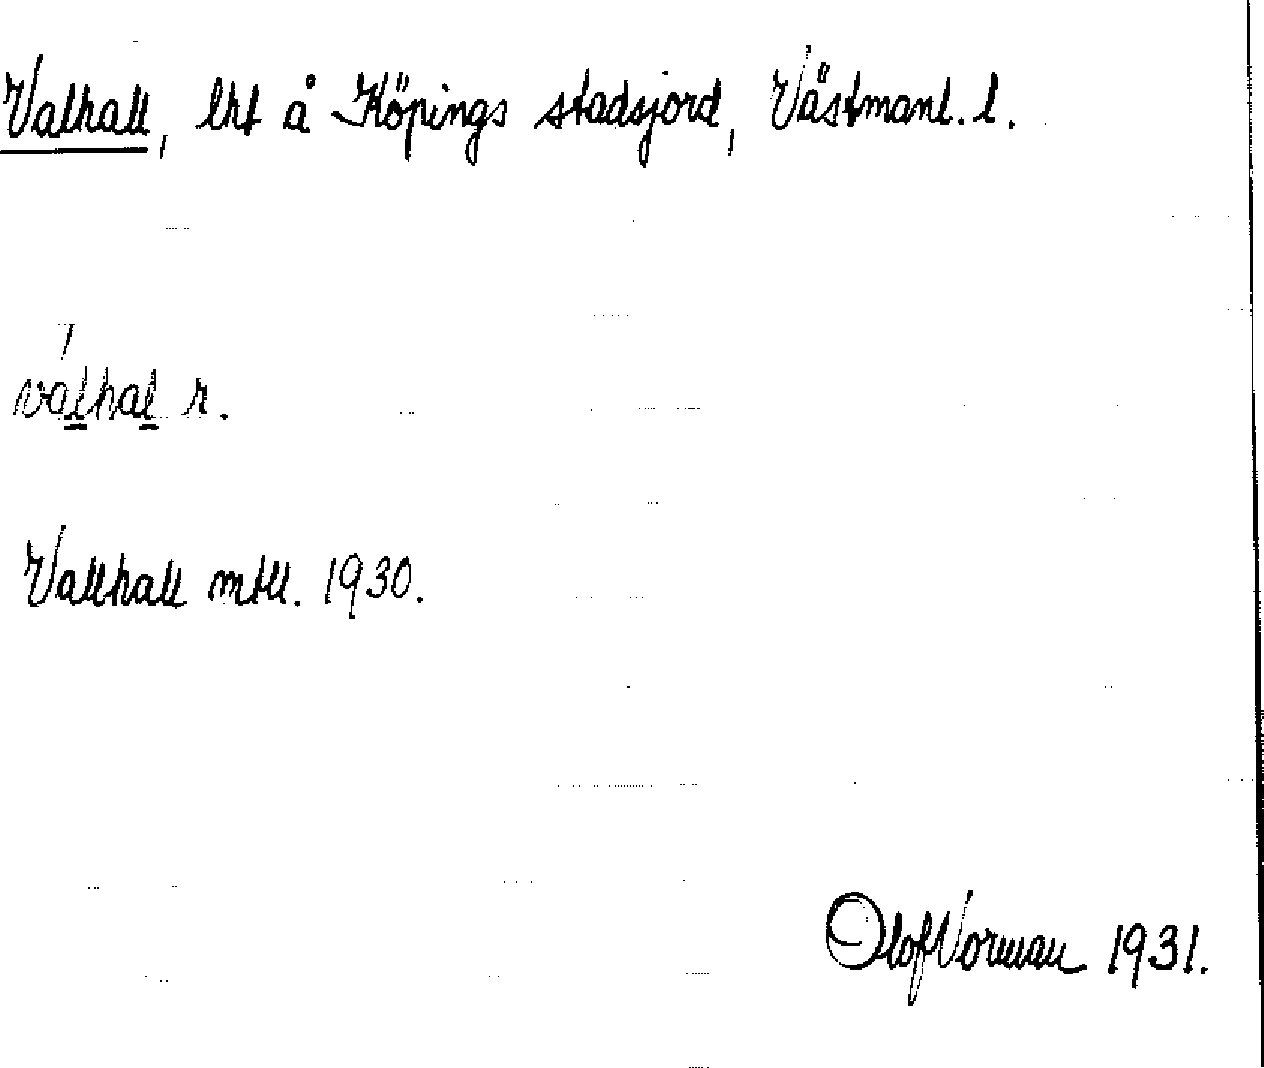 Valhall, lht å Köpings stadsjord, Västmanl. l.
válhal r.
Vallhall mtll. 1930.
Olof Norman 1931.